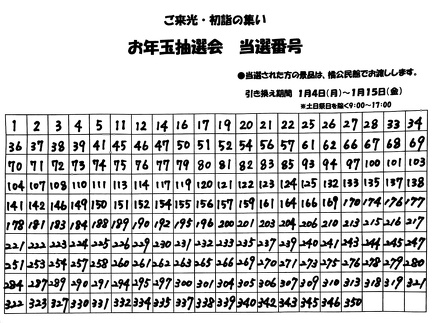 ご来光・初詣の集い
お年玉抽選会　当選番号
●当選された方の景品は、橋公民館でお渡しします。
引き換え期間　1月4日(月)～1月15日(金)
※土日祭日を除く9:00～17:00
1 2 3 4 5 11 12 14 16 17 19 20 21 22 25 26 27 28 33 34
36 37 38 39 41 45 46 47 50 51 52 54 56 57 61 62 66 67 68 69
70 71 72 73 74 75 76 77 79 80 81 82 83 85 93 94 97 100 101 103
104 107 108 110 111 113 114 117 119 120 121 122 123 124 125 132 133 135 137 138
141 142 146 149 150 151 152 154 155 156 157 159 160 161 168 169 170 174 176 177
178 181 183 184 188 189 190 192 195 196 200 201 203 204 206 210 213 215 216 217
221 222 223 224 225 226 229 230 231 232 233 235 237 239 240 241 243 244 245 247
251 253 254 257 258 260 261 262 263 265 266 269 270 271 273 275 276 278 279 280
284 287 289 290 291 294 295 297 300 301 304 305 306 307 309 310 313 318 319 321
322 323 327 330 331 332 334 335 337 338 339 340 342 343 345 346 350